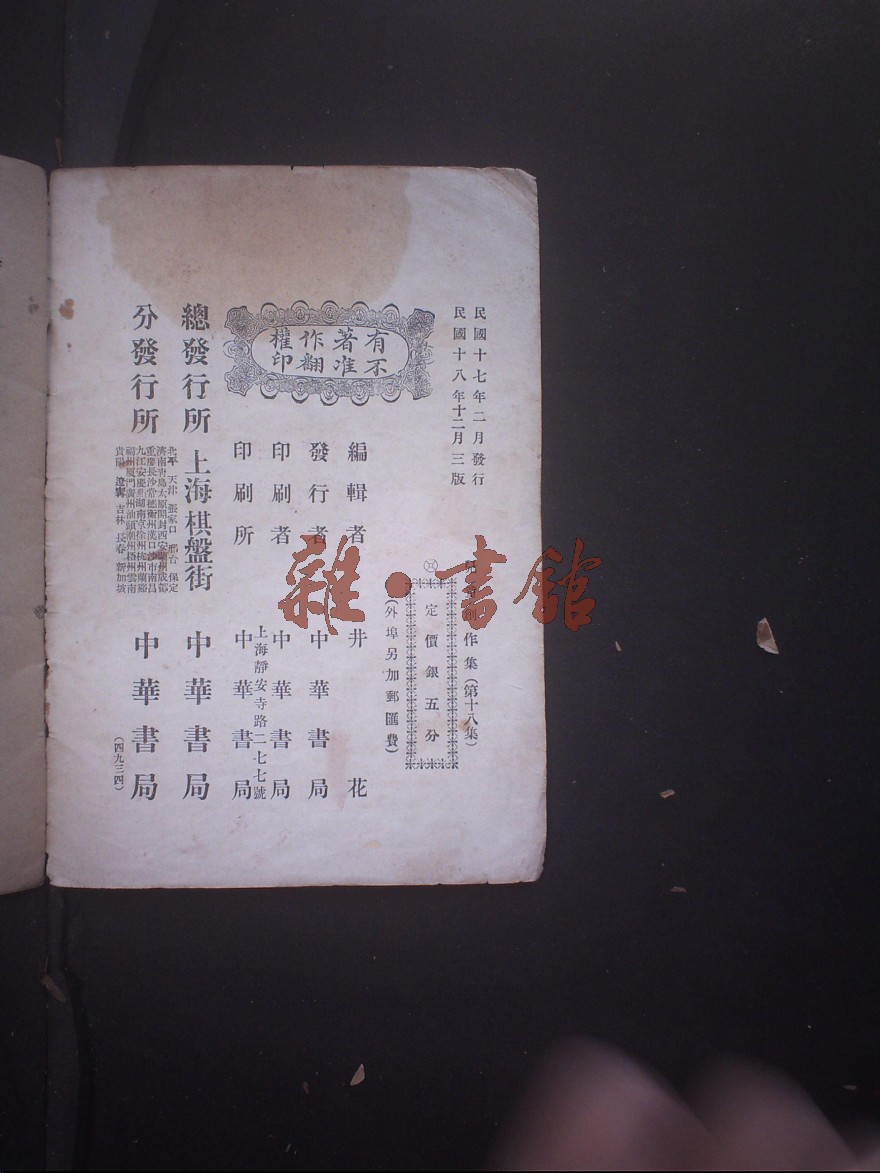 民國十七年二月發行
民國十八年十二月三版
創作集(第十八集)
定價銀五分
(外埠另加郵匯費)
有著作權
不准翻印
編輯者 井花
發行者 中華書局
印刷者 中華書局
上海靜安寺路二七七號
印刷所 中華書局
總發行所 上海棋盤街 中華書局
分發行所 中華書局
北平 天津 張家口 邢台 保定
濟南青島太原開封西安蘭州成都
重慶長沙常德衡州漢口沙市南昌
九江安慶蕪湖南京徐州杭州蘭谿
福州廈門廣州汕頭潮州梧州雲南
貴陽 遼寧 吉林 長春 新加坡
(四九三四)
雜·書館